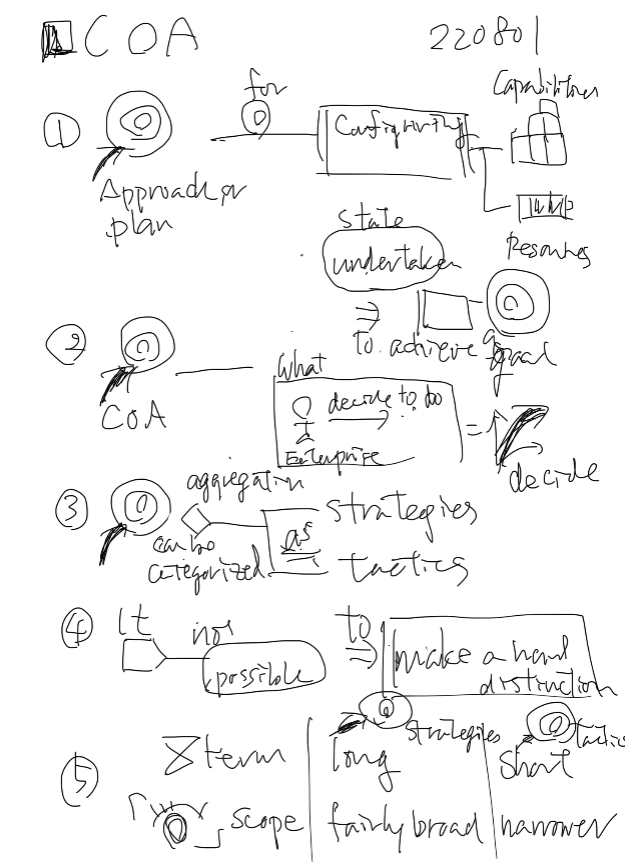 COA 220801
① for Configurating Capabilities
Approach or
plan
Resources
state
undertaken
②
to achieve a goal
COA
What
decide to do
Enterprise
=
decide
③ aggregation strategies
can be
categorized
as
tactics
④ It not
possible
to
make a hard
distinction
strategies tactics
⑤ term long short
scope fairly broad narrower